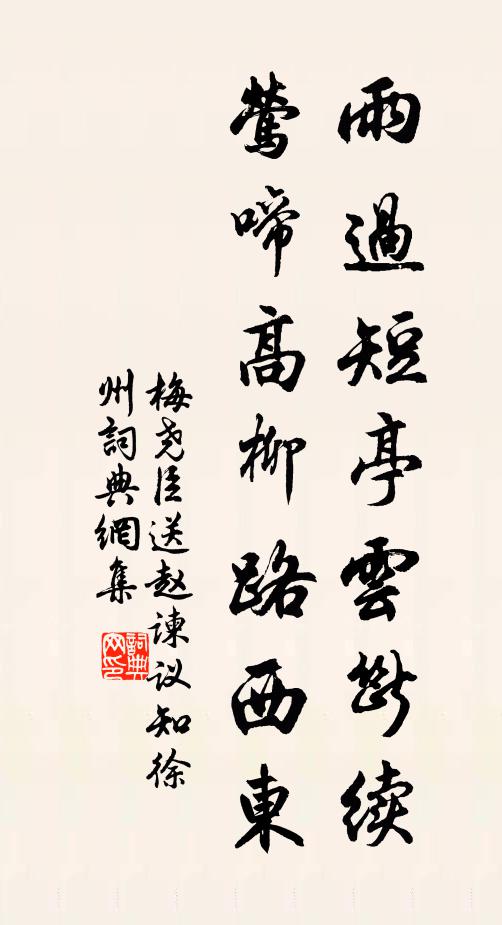 雨過短亭雲斷續
鶯啼高柳路西東
梅尧臣送赵谏议知徐
州詞典網集
詞典网印